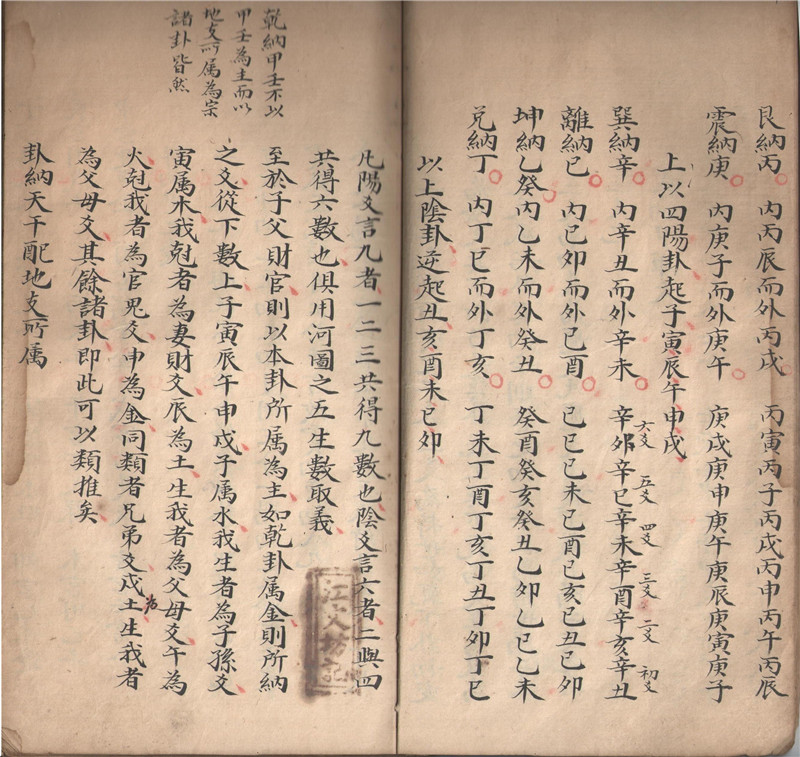 艮納丙 内丙辰而外丙戌 丙寅丙子丙戌丙申丙午丙辰
震納庚 内庚子而外庚午 庚戌庚申庚午庚辰庚寅庚子
上以四陽卦起子寅辰午申戌
巽納辛 内辛丑而外辛未 辛卯辛巳辛未辛酉辛亥辛丑
六爻 五爻 四爻 三爻 二爻 初爻
離納巳 内巳卯而外巳酉 巳巳巳未巳酉巳亥巳丑巳卯
坤納乙癸内乙未而外癸丑 癸酉癸亥癸丑乙卯乙巳乙未
兑納丁 内丁巳而外丁亥 丁未丁酉丁亥丁丑丁卯丁巳
以上陰卦逆起丑亥酉未巳卯
乾納甲壬不以
甲壬為主而以
地支所属為宗
諸卦皆然
凡陽爻言九者一二三共得九數也陰爻言六者二與四
共得六數也俱用河圖之五生數取義
至於子父財官則以本卦所属為主如乾卦属金則所納
之爻從下數上子寅辰午申戌子属水我生者為子孫爻
寅属木我尅者為妻財爻辰為土生我者為父母爻午為
火尅我者為官鬼爻申為金同類者兄弟爻戌為土生我者
為父母爻其餘諸卦即此可以類推矣
卦納天干配地支所属